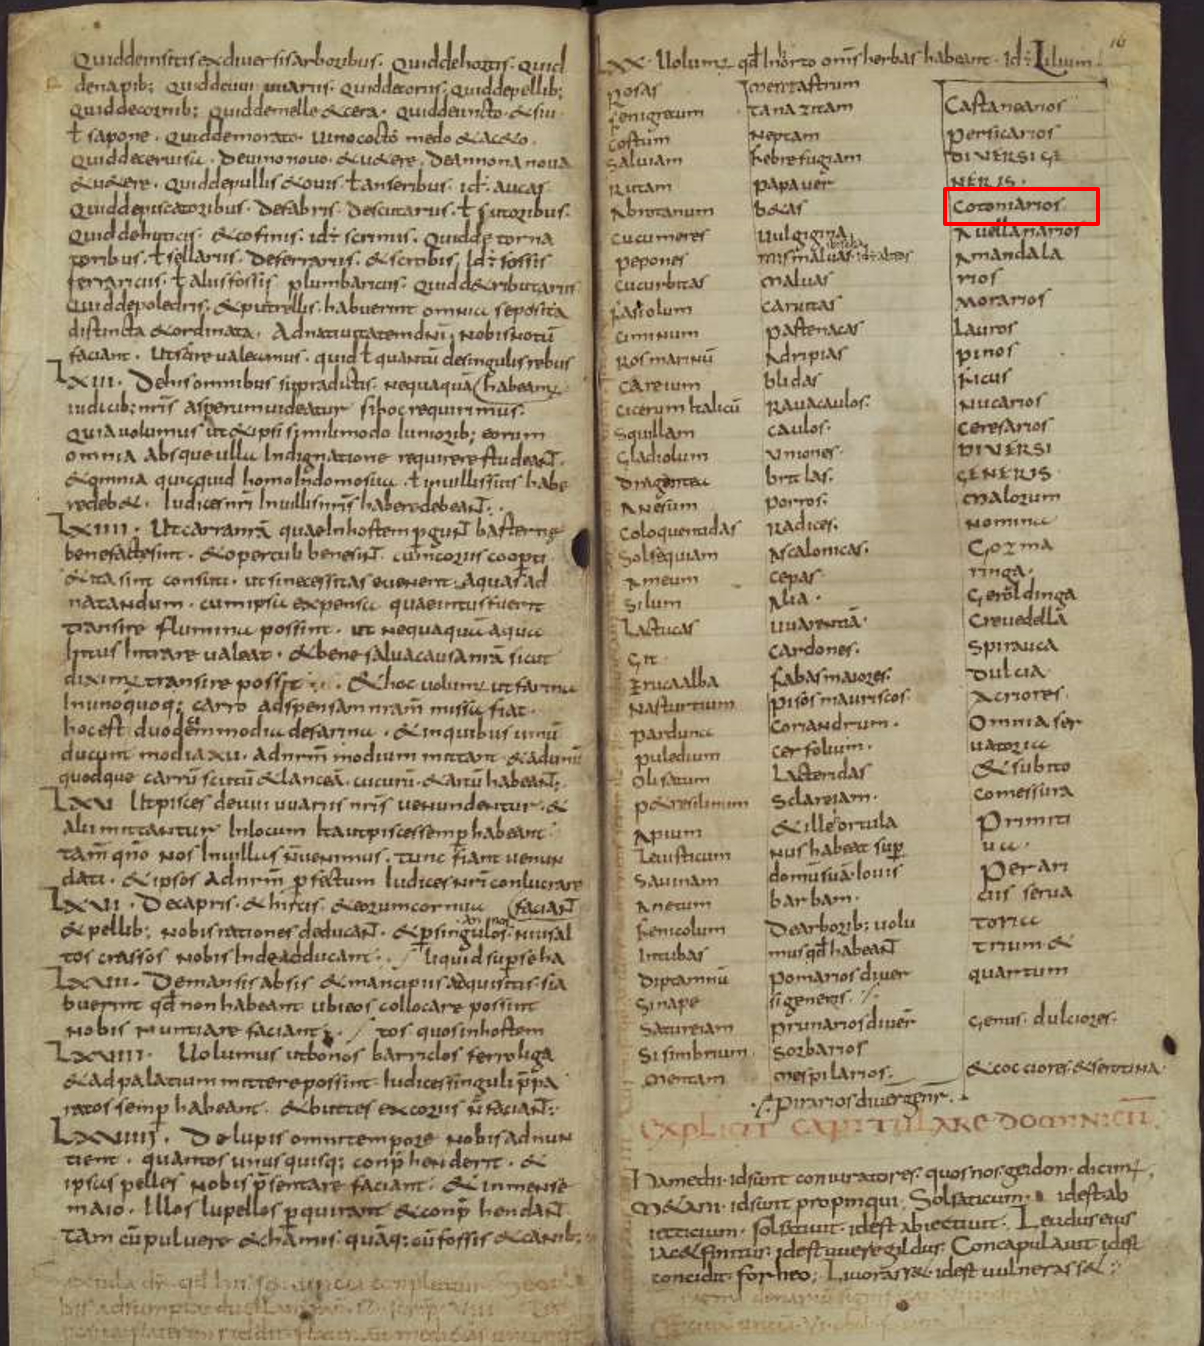 quiddeinsitis ex diversis arboribus. quiddehortis. quid
quiddecornib; quiddemelle & cera. quiddeuncto & siu
ł sapone. quiddemorato. vinococto medo & ac&o.
quiddecervisa. devinonovo. & u&ere. deannonanova
& u&ere. quiddepullis & ovis ł anseribus. id. aucas
quiddepiscatoribus. defabris. descutariis. ł sutoribus.
quiddehuticis. & cofinis. id. scriniis. quidde torna
toribus. ł sellariis. deferrariis. & scrobis. id. fossis
ferraricis. ł aliis fossis plumbaricis. quidde tributariis
quiddepoledris. & putrellis. habuerint omnia seposita
distincta & ordinata. Adnativitatem dni. nobis notu
faciant. Ut scire valeamus. quid ł quantu desingulis rebus
LXIII. Dehis omnibus supradictis. nequaqua habeam
iudicib; nris asperum videatur si hoc requirimus.
quia volumus ut & ipsi simili modo iuniorib; eorum
omnia absque ulla indignatione requirere studeant.
& omnia quicquid homo in domo sua. ł in villis suis habe
re deb&. iudices nri in villis nris habere debeant.
LXIIII. Ut carra nra quae in hostem pgunt basterne
bene factae sint. & operculi bene sint. cum coriis cooperti
& ita sint consuti. ut si necessitas evenerit. Aquas ad
natandum. cum ipsa expensa quae intus fuerit
transire flumina possint. ut nequaqua aqua
intus intrare valeat. & bene salva causa nra sicut
diximus transire possit. & hoc volum ut farina
In unoquoq; carro ad spensam nram missa fiat.
hoc est duodeci modia de farina. & in quibus vinu
ducunt modia XII. ad nrm modium mittant & ad unu
quodque carru scutu & lancea. cucuru. & arcu habeant.
LXV Ut pisces de vivariis nris venundentur. &
alii mittantur in locum ita ut pisces semp habeant.
tam qno nos in villas n venimus. tunc fiant venun
dati. & ipsos ad nrm pfectum iudices nri conlucrare
LXVI. De capris. & hircis & eorum cornua faciant
& pellib; nobis rationes deducant. & p singulos annos niusal
tos crassos nobis inde adducant. liquid sup se ha
LXVII. De mansis absis & mancipiis adquisitis. si a
buerint qd non habeant ubi eos collocare possint
nobis nuntiare faciant. tos quos in hostem
LXVIII. Volumus ut bonos barriclos ferro liga
& ad palatium mittere possint. iudices singuli ppa
ratos semp habeant. & buttes ex coriis n faciant.
LXVIIII. De lupis omni tempore nobis adnun
tient. quantos unusquisq; conphenderit. &
ipsas pelles nobis psentare faciant. & in mense
maio. Illos lupellos pquirant & conphendant
tam cu pulvere & hamis. quaq; cu fossis & canib;
16
LXX. Volum qd in horto omis herbas habeant. id. Lilium
rosas
fenigrecum
costum
Salviam
Rutam
Abrotanum
Cucumeres
pepones
Cucurbitas
fasiolum
ciminum
Ros marinu
careium
cicerum italicu
Squillam
Gladiolum
Dragantea
Anesum
Coloquentidas
Solsequiam
Ameum
Silum
Lactucas
Git
Erucaalba
Nasturtium
parduna
puledium
Olisatum
p&resilinum
Apium
Levisticum
Savinam
Anetum
fenicolum
Intubas
Diptamnu
Sinape
Satureiam
Sisimbrium
Mentam
mentastrum
tanazitam
Neptam
febrefugiam
papaver
b&as
Vulgigina
mismalvas. id. altes
malvas
carvitas
pastenacas
Adripias
blidas
Ravacaulos.
caulos.
Uniones.
britlas.
porros.
Radices.
Ascalonicas.
Cepas
Alia.
Warentia.
Cardones.
fabas maiores.
pisos mauriscos
Coriandrum.
cerfolium.
Lacteridas
Sclareiam.
& ille ortula
nus habeat sup
domu sua. Iovis
barbam.
De arborib; volu
mus qd habeant
Pomarios diver
si generis.
prunarios diver
Sorbarios
mespilarios.
pirarios div gener.
Castanearios
Persicarios
DIVERSI GE
NERIS.
Cotoniarios
Avellanarios
Amandala
rios
Morarios
Lauros
pinos
ficus
Nucarios
Ceresarios
DIVERSI
GENERIS
Malorum
nomina
Gozma
ringa.
Geroldinga
Crevedella
Spirauca
Dulcia.
Acriores
Omnia ser
vatoria
& subito
comessura
Primiti
va.
Perari
ciis serva
toria
trium &
quartum
Genus. dulciores.
& cocciores. & serotina.
EXPLICIT CAPITULARE DOMINICU
Hamedii. id sunt coniuratores. quos nos geidon. dicim,
M&ari. id sunt propinqui. Solsaticum. id est ab
iecticium. Solsativit. id est abiectivit. Leudus eius
iac& finitus. id est weregildus. Concapulavit id est
concidit. forheo; Livoras s&. id est vulneras s&.